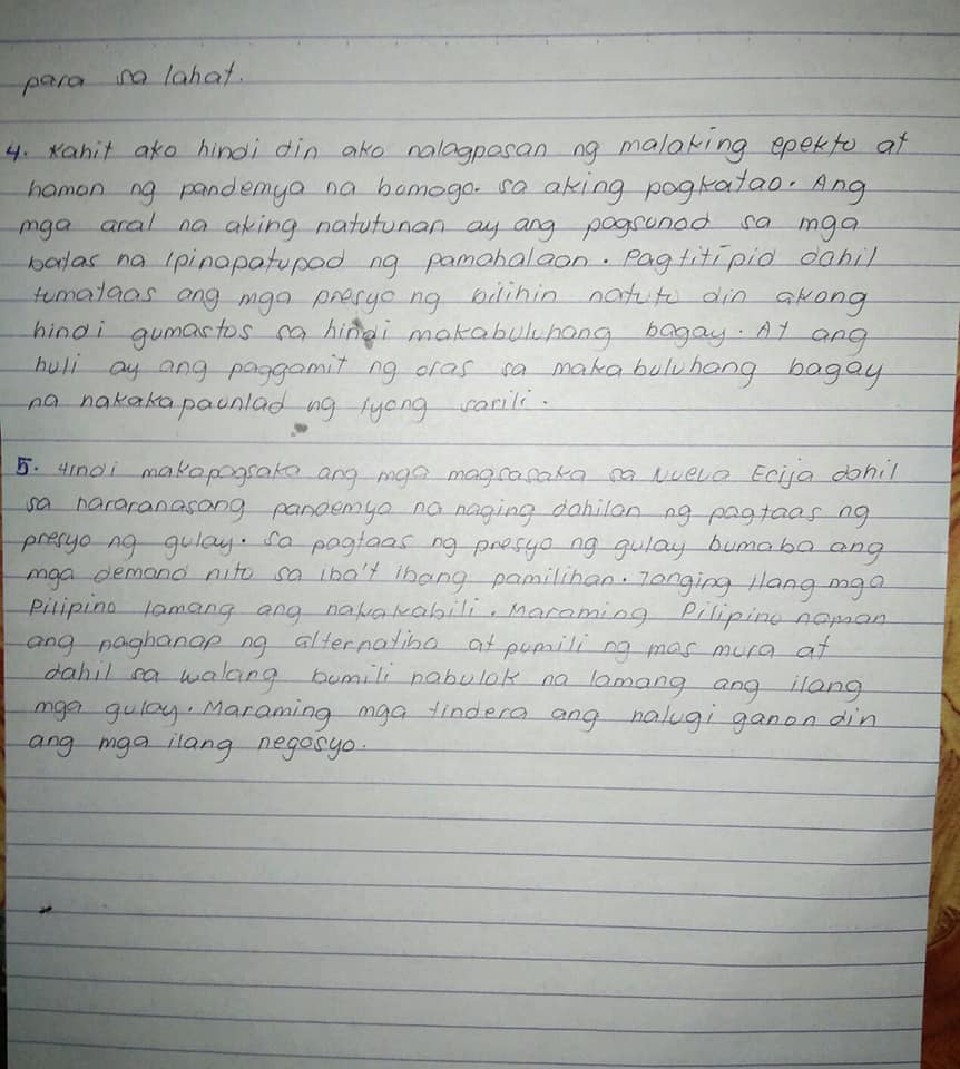 para sa lahat.
4. Kahit ako hindi din ako nalagpasan ng malaking epekto at
hamon ng pandemya na bomogo sa aking pagkatao. Ang
mga aral na aking natutunan ay ang pagsunod sa mga
batas na ipinapatupad ng pamahalaan. Pagtitipid dahil
tumataas ang mga presyo ng bilihin natuto din akong
hindi gumastos sa hindi makabuluhang bagay. At ang
huli ay ang paggamit ng oras sa makabuluhang bagay
na nakakapaunlad ng iyong sarili.
5. Hindi makapagsaka ang mga magsasaka sa Nueva Ecija dahil
sa nararanasang pandemya na naging dahilan ng pagtaas ng
presyo ng gulay. Sa pagtaas ng presyo ng gulay bumaba ang
mga demand nito sa iba't ibang pamilihan. Tanging ilang mga
Pilipino lamang ang nakakabili. Maraming Pilipino naman
ang naghanap ng alternatibo at pumili ng mas mura at
dahil sa walang bumili nabulok na lamang ang ilang
mga gulay. Maraming mga tindera ang nalugi ganon din
ang mga ilang negosyo.